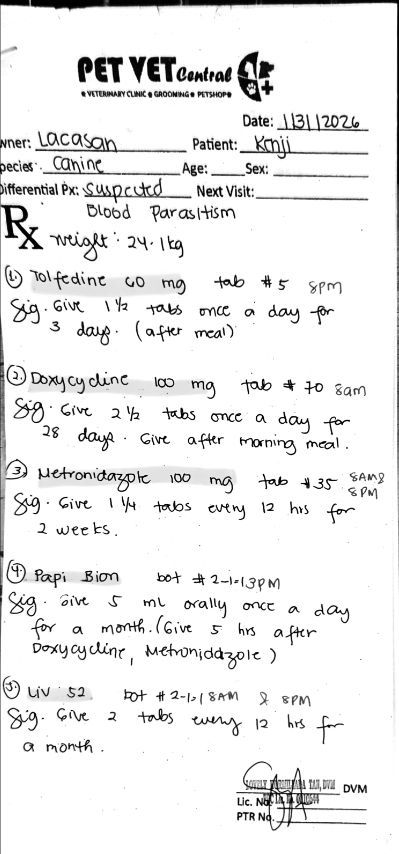 PET VET Central
VETERINARY CLINIC GROOMING PETSHOP
Date: 1/31/2026
wner: Lacasan Patient: Kenji
pecies: Canine Age: Sex:
Differential Px: Suspected Next Visit:
Blood Parasitism
Rx weight: 24.1kg
1. Tolfedine 60 mg tab #5 8PM
Sig. Give 1 1/2 tabs once a day for
3 days. (after meal)
2. Doxycycline 100 mg tab # 70 8am
Sig. Give 2 1/2 tabs once a day for
28 days. Give after morning meal.
3. Metronidazole 100 mg tab #35 8AM &
8PM
Sig. Give 1 1/4 tabs every 12 hrs for
2 weeks.
4. Papi Bion bot # 2 1PM
Sig. Give 5 mL orally once a day
for a month. (Give 5 hrs after
Doxycycline, Metronidazole)
5. Liv 52 bot # 2 8AM & 8PM
Sig. Give 2 tabs every 12 hrs for
a month.
TAN, DVM DVM
Lic. No.
PTR No.